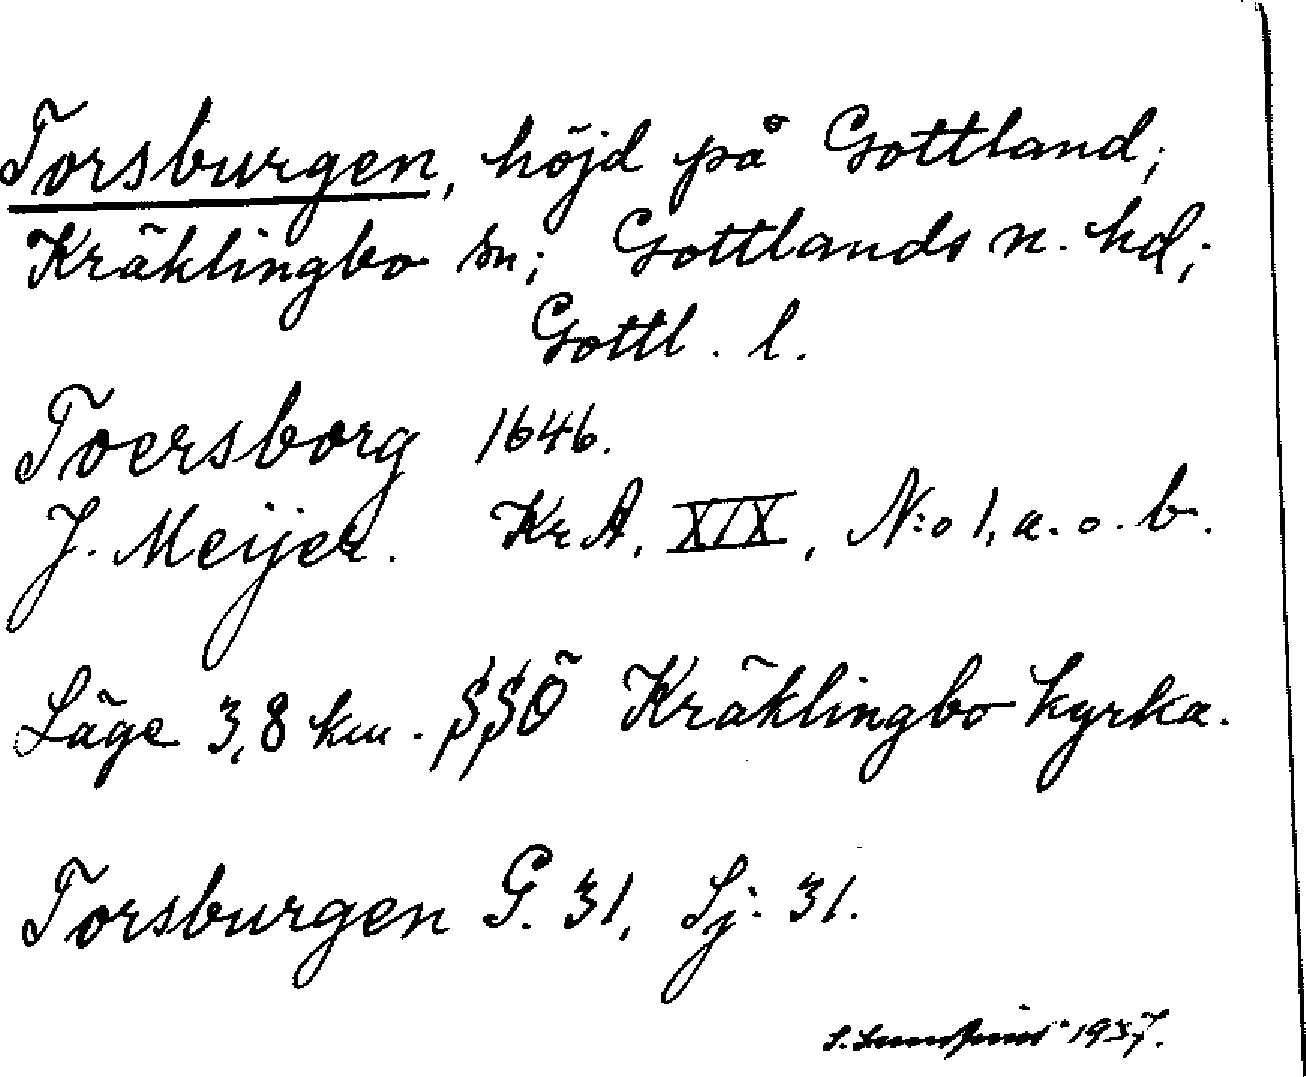 Torsburgen, höjd på Gottland;
Kräklingbo sn; Gottlands n. hd;
Gottl. l.
Toersborg 1646.
J. Meijer. Kr. A. XIX, N:o 1, a. o. b.
Läge 3,8 km. SSÖ Kräklingbo kyrka.
Torsburgen G. 31, Sj: 31.
1937.